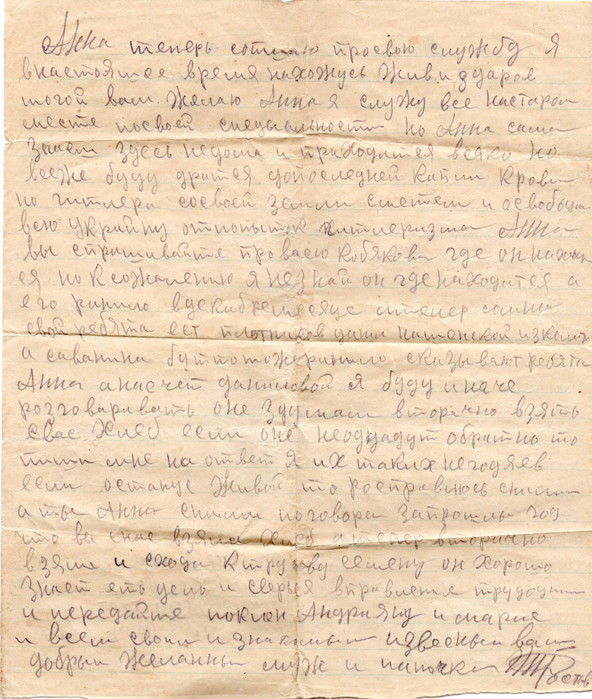 Анна теперь сопишаю проевою службу. Я
внастоящее время нахожусь жив и здоров
тогой вам желаю Анна я служу все настаром
месте посвоей специальности но Анна сама
знаеш здесь недома и приходится всяко но
всеже буду дратся допоследней капли крови
но гитлера соевоей земли сметем и освободим
всю украйну отпопыток гитлеризма Анна
вы спрашивайте проВасю Кобякова где он находи
ся но ксожалению я незнай он где находится а
его ранило вдекабремесяце
свой ребята ест плотников
а саванина буттотожеранило сказывают ребята
Анна анасчет даниловой я буду иначе
розговаривать оне здумали вторично взять
свас Хлеб если оне неоддадут обратно то
пиши мне на ответ я их таких негодяев
если останус живой то ростравлюсь сними
а ты Анна сними поговори запрошлы год
что вы снас взяли хлеб атепер вторично
взяли и сходи к семену он хорошо
знает ето дело и сверься вправление трудодни
и передайте поклон Андрияну и марие
и всем своим и знакомым извесный вам
добрый желанный муж и папочка